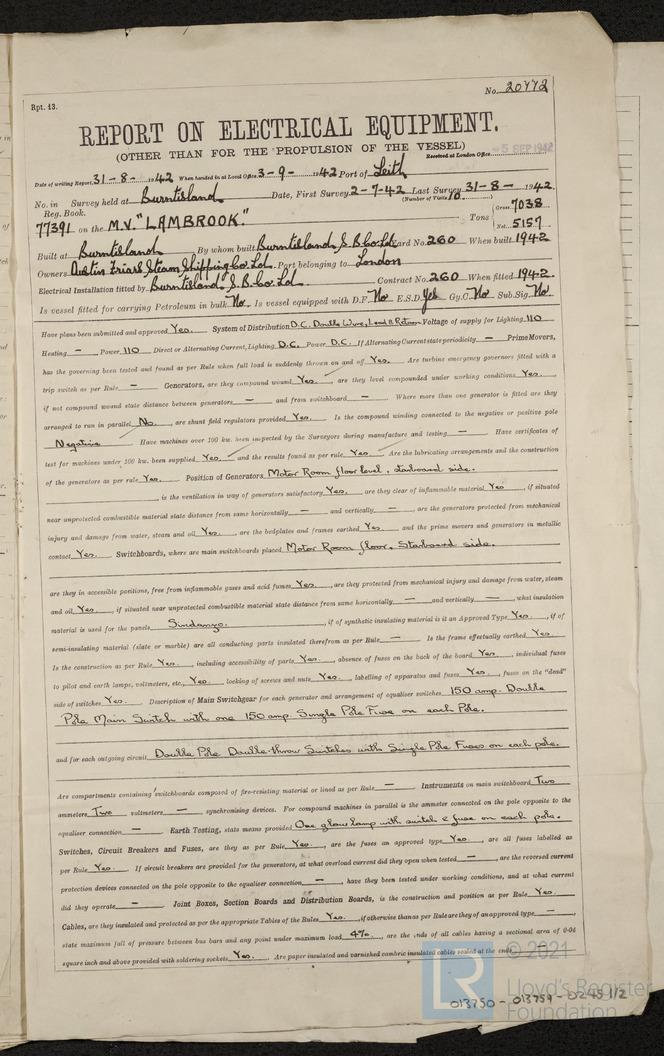 No. 20772
Rpt. 13.
REPORT ON ELECTRICAL EQUIPMENT.
(OTHER THAN FOR THE PROPULSION OF THE VESSEL)
Received at London Office 5 SEP 1942
Date of writing Report 31-8-1942 When handed in at Local Office 3-9-1942 Port of Leith
No. in Survey held at Burntisland Date, First Survey 2-7-42 Last Survey 31-8-1942
Reg. Book. (Number of Visits 10.)
77391 on the M.V. "LAMBROOK." Tons { Gross 7038 Net 5157
Built at Burntisland By whom built Burntisland S.B. Co. Ld. Yard No. 260 When built 1942
Owners Austin Friars Steam Shipping Co. Ld. Port belonging to London
Electrical Installation fitted by Burntisland S.B. Co. Ld. Contract No. 260 When fitted 1942.
Is vessel fitted for carrying Petroleum in bulk No. Is vessel equipped with D.F. No E.S.D. Yes Gy.C. No Sub.Sig. No.
Have plans been submitted and approved Yes. System of Distribution D.C. Double Wire, Lead & Return Voltage of supply for Lighting 110
Heating — Power 110 Direct or Alternating Current, Lighting D.C. Power D.C. If Alternating Current state periodicity — Prime Movers,
has the governing been tested and found as per Rule when full load is suddenly thrown on and off Yes. Are turbine emergency governors fitted with a
trip switch as per Rule — Generators, are they compound wound Yes., are they level compounded under working conditions Yes.,
if not compound wound state distance between generators — and from switchboard — Where more than one generator is fitted are they
arranged to run in parallel No., are shunt field regulators provided Yes. Is the compound winding connected to the negative or positive pole
Negative Have machines over 100 kw. been inspected by the Surveyors during manufacture and testing — Have certificates of
test for machines under 100 kw. been supplied Yes. and the results found as per rule Yes. Are the lubricating arrangements and the construction
of the generators as per rule Yes. Position of Generators Motor Room floor level, starboard side.
, is the ventilation in way of generators satisfactory Yes., are they clear of inflammable material Yes, if situated
near unprotected combustible material state distance from same horizontally — and vertically —, are the generators protected from mechanical
injury and damage from water, steam and oil Yes., are the bedplates and frames earthed Yes and the prime movers and generators in metallic
contact Yes. Switchboards, where are main switchboards placed Motor Room floor, Starboard side.
are they in accessible positions, free from inflammable gases and acid fumes Yes., are they protected from mechanical injury and damage from water, steam
and oil Yes., if situated near unprotected combustible material state distance from same horizontally — and vertically —, what insulation
material is used for the panels Sindanyo., if of synthetic insulating material is it an Approved Type Yes., if of
semi-insulating material (slate or marble) are all conducting parts insulated therefrom as per Rule — Is the frame effectually earthed Yes
Is the construction as per Rule Yes., including accessibility of parts Yes., absence of fuses on the back of the board Yes., individual fuses
to pilot and earth lamps, voltmeters, etc., Yes. locking of screws and nuts Yes. labelling of apparatus and fuses Yes., fuses on the "dead"
side of switches Yes. Description of Main Switchgear for each generator and arrangement of equaliser switches 150 amp. Double
Pole Main Switch with one 150 amp. Single Pole Fuse on each Pole.
and for each outgoing circuit Double Pole Double-throw Switches with Single Pole Fuses on each pole.
Are compartments containing switchboards composed of fire-resisting material or lined as per Rule — Instruments on main switchboard Two
ammeters Two voltmeters — synchronising devices. For compound machines in parallel is the ammeter connected on the pole opposite to the
equaliser connection — Earth Testing, state means provided One glow lamp with switch & fuse on each pole.
Switches, Circuit Breakers and Fuses, are they as per Rule Yes., are the fuses an approved type Yes., are all fuses labelled as
per Rule Yes. If circuit breakers are provided for the generators, at what overload current did they open when tested —, are the reversed current
protection devices connected on the pole opposite to the equaliser connection —, have they been tested under working conditions, and at what current
did they operate — Joint Boxes, Section Boards and Distribution Boards, is the construction and position as per Rule Yes.
Cables, are they insulated and protected as per the appropriate Tables of the Rules Yes., if otherwise than as per Rule are they of an approved type —,
state maximum fall of pressure between bus bars and any point under maximum load 4%., are the ends of all cables having a sectional area of 0·04
square inch and above provided with soldering sockets Yes. Are paper insulated and varnished cambric insulated cables sealed at the ends —
LR
© 2021
Lloyd's Register
Foundation
013750 - 013759 - 0245 1/2